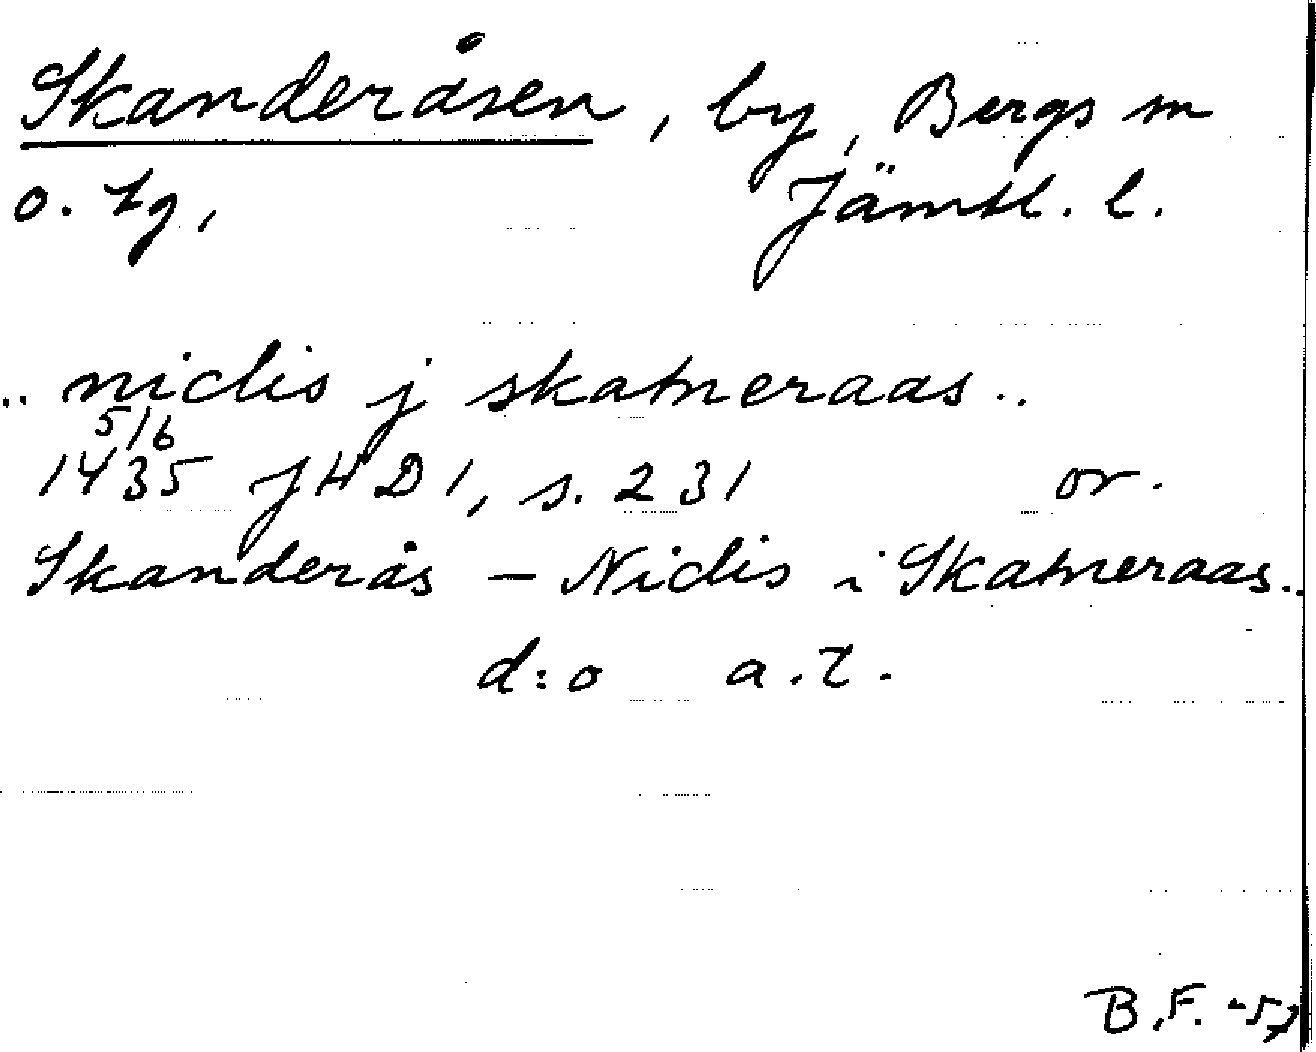 Skanderåsen, by, Bergs sn
o. tg, Jämtl. l.
.. niclis j skatneraas ..
5/6
1435 JHD 1, s. 231 or.
Skanderås – Niclis i Skatneraas..
d:o a.t.
B.F. -57